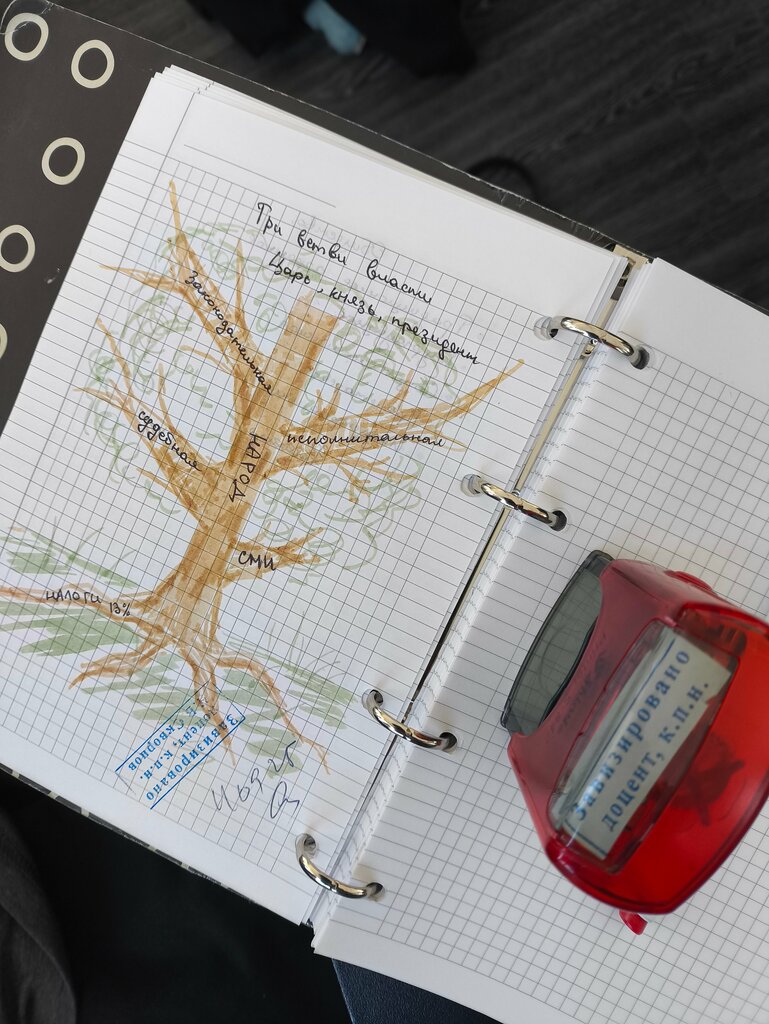 Три ветви власти
Царь, князь, президент
законодательная
НАРОД
исполнительная
судебная
СМИ
НАЛОГИ 13%
Завизировано
доцент, к.п.н.
Скворцов
Завизировано
доцент, к.п.н.